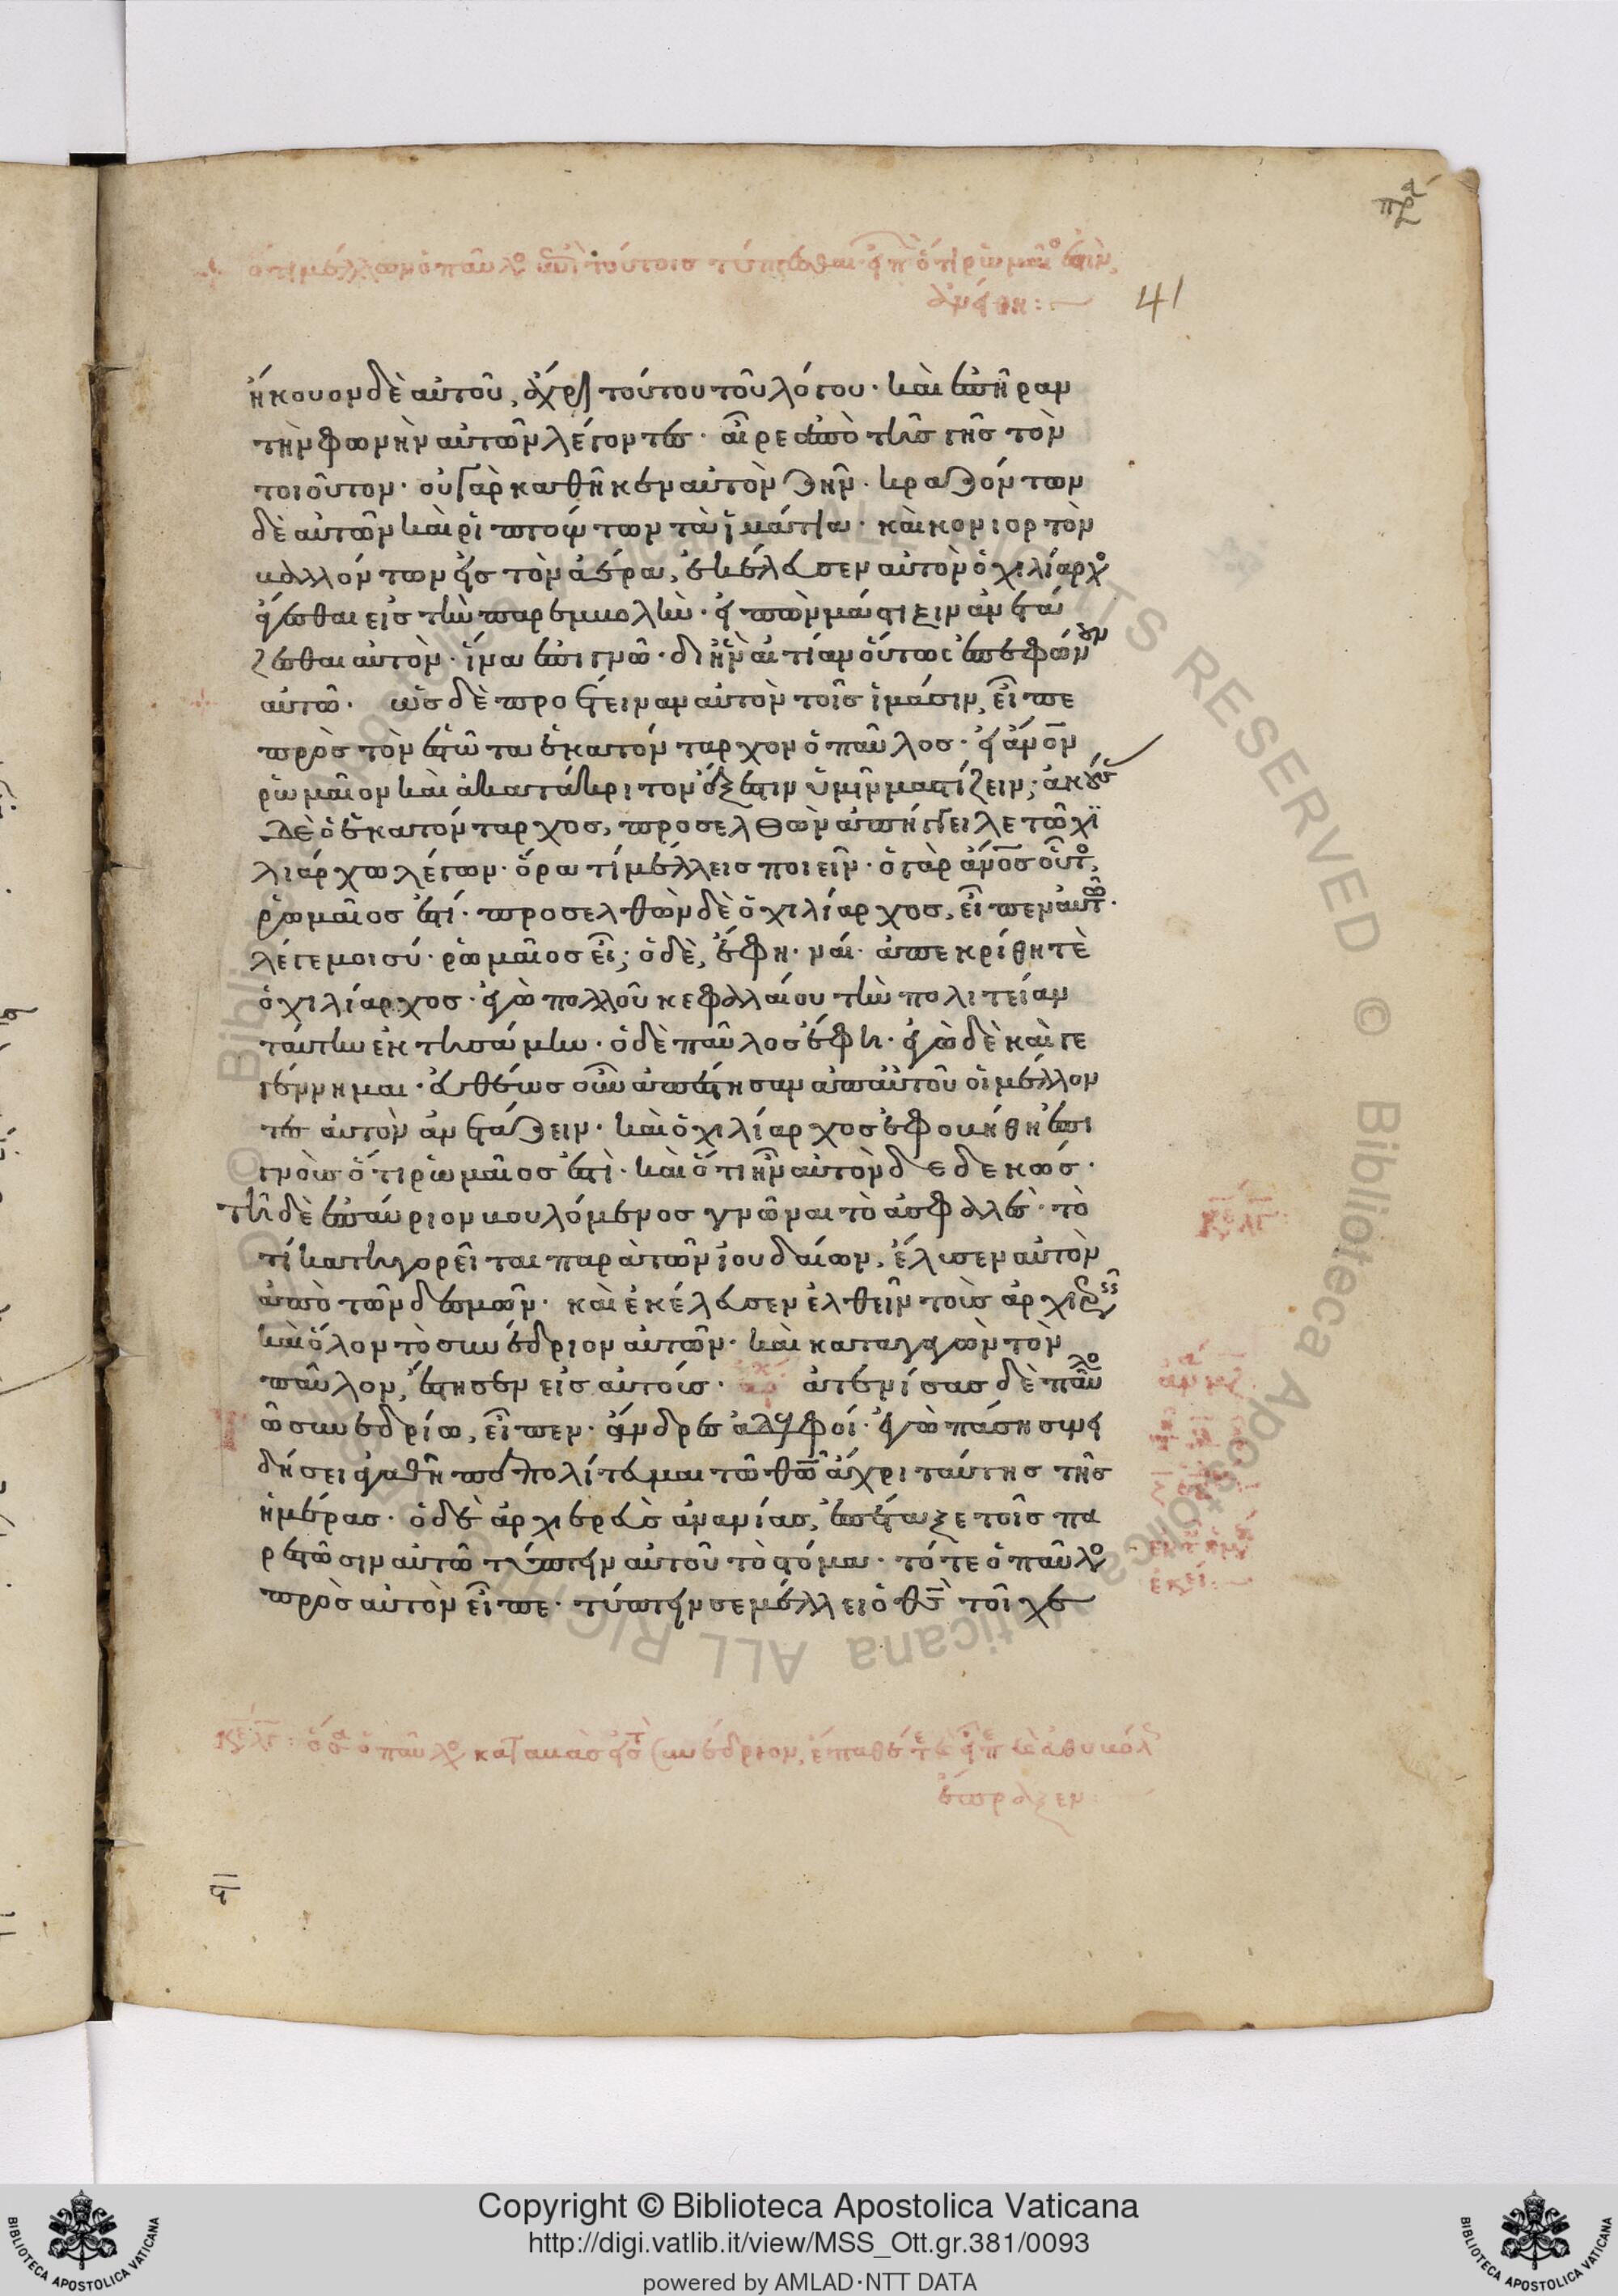 πδ
41
ὅτι μέλλων ὁ παῦλο τύπτεσθαι ὅτι ῥωμαῖ ἐστιν,
ἀνέθη:
ἤκουον δὲ αὐτοῦ, ἄχρι τούτου τοῦ λόγου· καὶ ἐπῆραν
τὴν φωνὴν αὐτῶν λέγοντες· αἶρε ἀπὸ τῆς γῆς τὸν
τοιοῦτον· οὐ γὰρ καθῆκεν αὐτὸν ζῆν· κραζόντων
δὲ αὐτῶν καὶ ῥιπτούντων τὰ ἱμάτια· καὶ κονιορτὸν
βαλλόντων εἰς τὸν ἀέρα, ἐκέλευσεν αὐτὸν ὁ χιλίαρχο
ἄγεσθαι εἰς τὴν παρεμβολὴν· εἰπὼν μάστιξιν ἀνετά
ζεσθαι αὐτὸν· ἵνα ἐπιγνῶ· δι ἣν αἰτίαν οὕτως ἐπεφώνουν
αὐτῶ· ὡς δὲ προέτειναν αὐτὸν τοῖς ἱμάσιν, εἶπε
πρὸς τὸν ἑστῶτα ἑκατόνταρχον ὁ παῦλος· εἰ ἄνον
ῥωμαῖον καὶ ἀκατάκριτον ἔξεστιν ὑμῖν μαστίζειν; ἀκούς
δὲ ὁ ἑκατόνταρχος, προσελθὼν ἀπήγγειλε τῶ χι
λιάρχω λέγων· ὅρα τί μέλλεις ποιεῖν· ὁ γὰρ ἄνος οὗτο,
ῥωμαῖος ἐστί· προσελθὼν δὲ ὁ χιλίαρχος, εἶπεν αὐτῶ·
λέγε μοι σύ· ῥωμαῖος εἶ; ὁ δὲ, ἔφη· ναί· ἀπεκρίθη τὲ
ὁ χιλίαρχος· ἐγὼ πολλοῦ κεφαλαίου τὴν πολιτείαν
ταύτην ἐκτησάμην· ὁ δὲ παῦλος ἔφη· ἐγὼ δὲ καὶ γε
γέννημαι· εὐθέως οὖν ἀπέστησαν ἀπ αὐτοῦ οἱ μέλλον
τες αὐτὸν ἀνετάζειν· καὶ ὁ χιλίαρχος ἐφοβήθη ἐπι
γνοὺς ὅτι ῥωμαῖος ἐστὶ· καὶ ὅτι ἦν αὐτὸν δεδεκώς·
τῆ δὲ ἐπαύριον βουλόμενος γνῶναι τὸ ἀσφαλὲς· τὸ
κε λγ:
τί κατηγορεῖται παρὰ τῶν ἰουδαίων, ἔλυσεν αὐτὸν
ἀπὸ τῶν δεσμῶν· καὶ ἐκέλευσεν ἐλθεῖν τοὺς ἀρχιερεῖς
καὶ ὅλον τὸ συνέδριον αὐτῶν· καὶ καταγαγὼν τὸν
παῦλον, ἔστησεν εἰς αὐτούς· ἀτενίσας δὲ παῦλο
ῶ συνεδρίω, εἶπεν· ἄνδρες ἀδελφοί· ἐγὼ πάση συνει
δήσει ἀγαθῆ πεπολίτευμαι τῶ θῶ ἄχρι ταύτης τῆς
ἡμέρας· ὁ δὲ ἀρχιερεὺς ἀνανίας, ἐπέταξε τοῖς πα
ρεστῶσιν αὐτῶ τύπτειν αὐτοῦ τὸ στόμα· τότε ὁ παῦλο
ἐκεῖ:
πρὸς αὐτὸν εἶπε· τύπτειν σε μέλλει ὁ θς τοῖχε
κε λγ: ὅσα ὁ παῦλο καταβὰς εἰς τὸ συνέδριον, ἔπαθέ τε
ἔπραξεν:
Copyright © Biblioteca Apostolica Vaticana
http://digi.vatlib.it/view/MSS_Ott.gr.381/0093
powered by AMLAD·NTT DATA
BIBLIOTECA APOSTOLICA VATICANA
BIBLIOTECA APOSTOLICA VATICANA